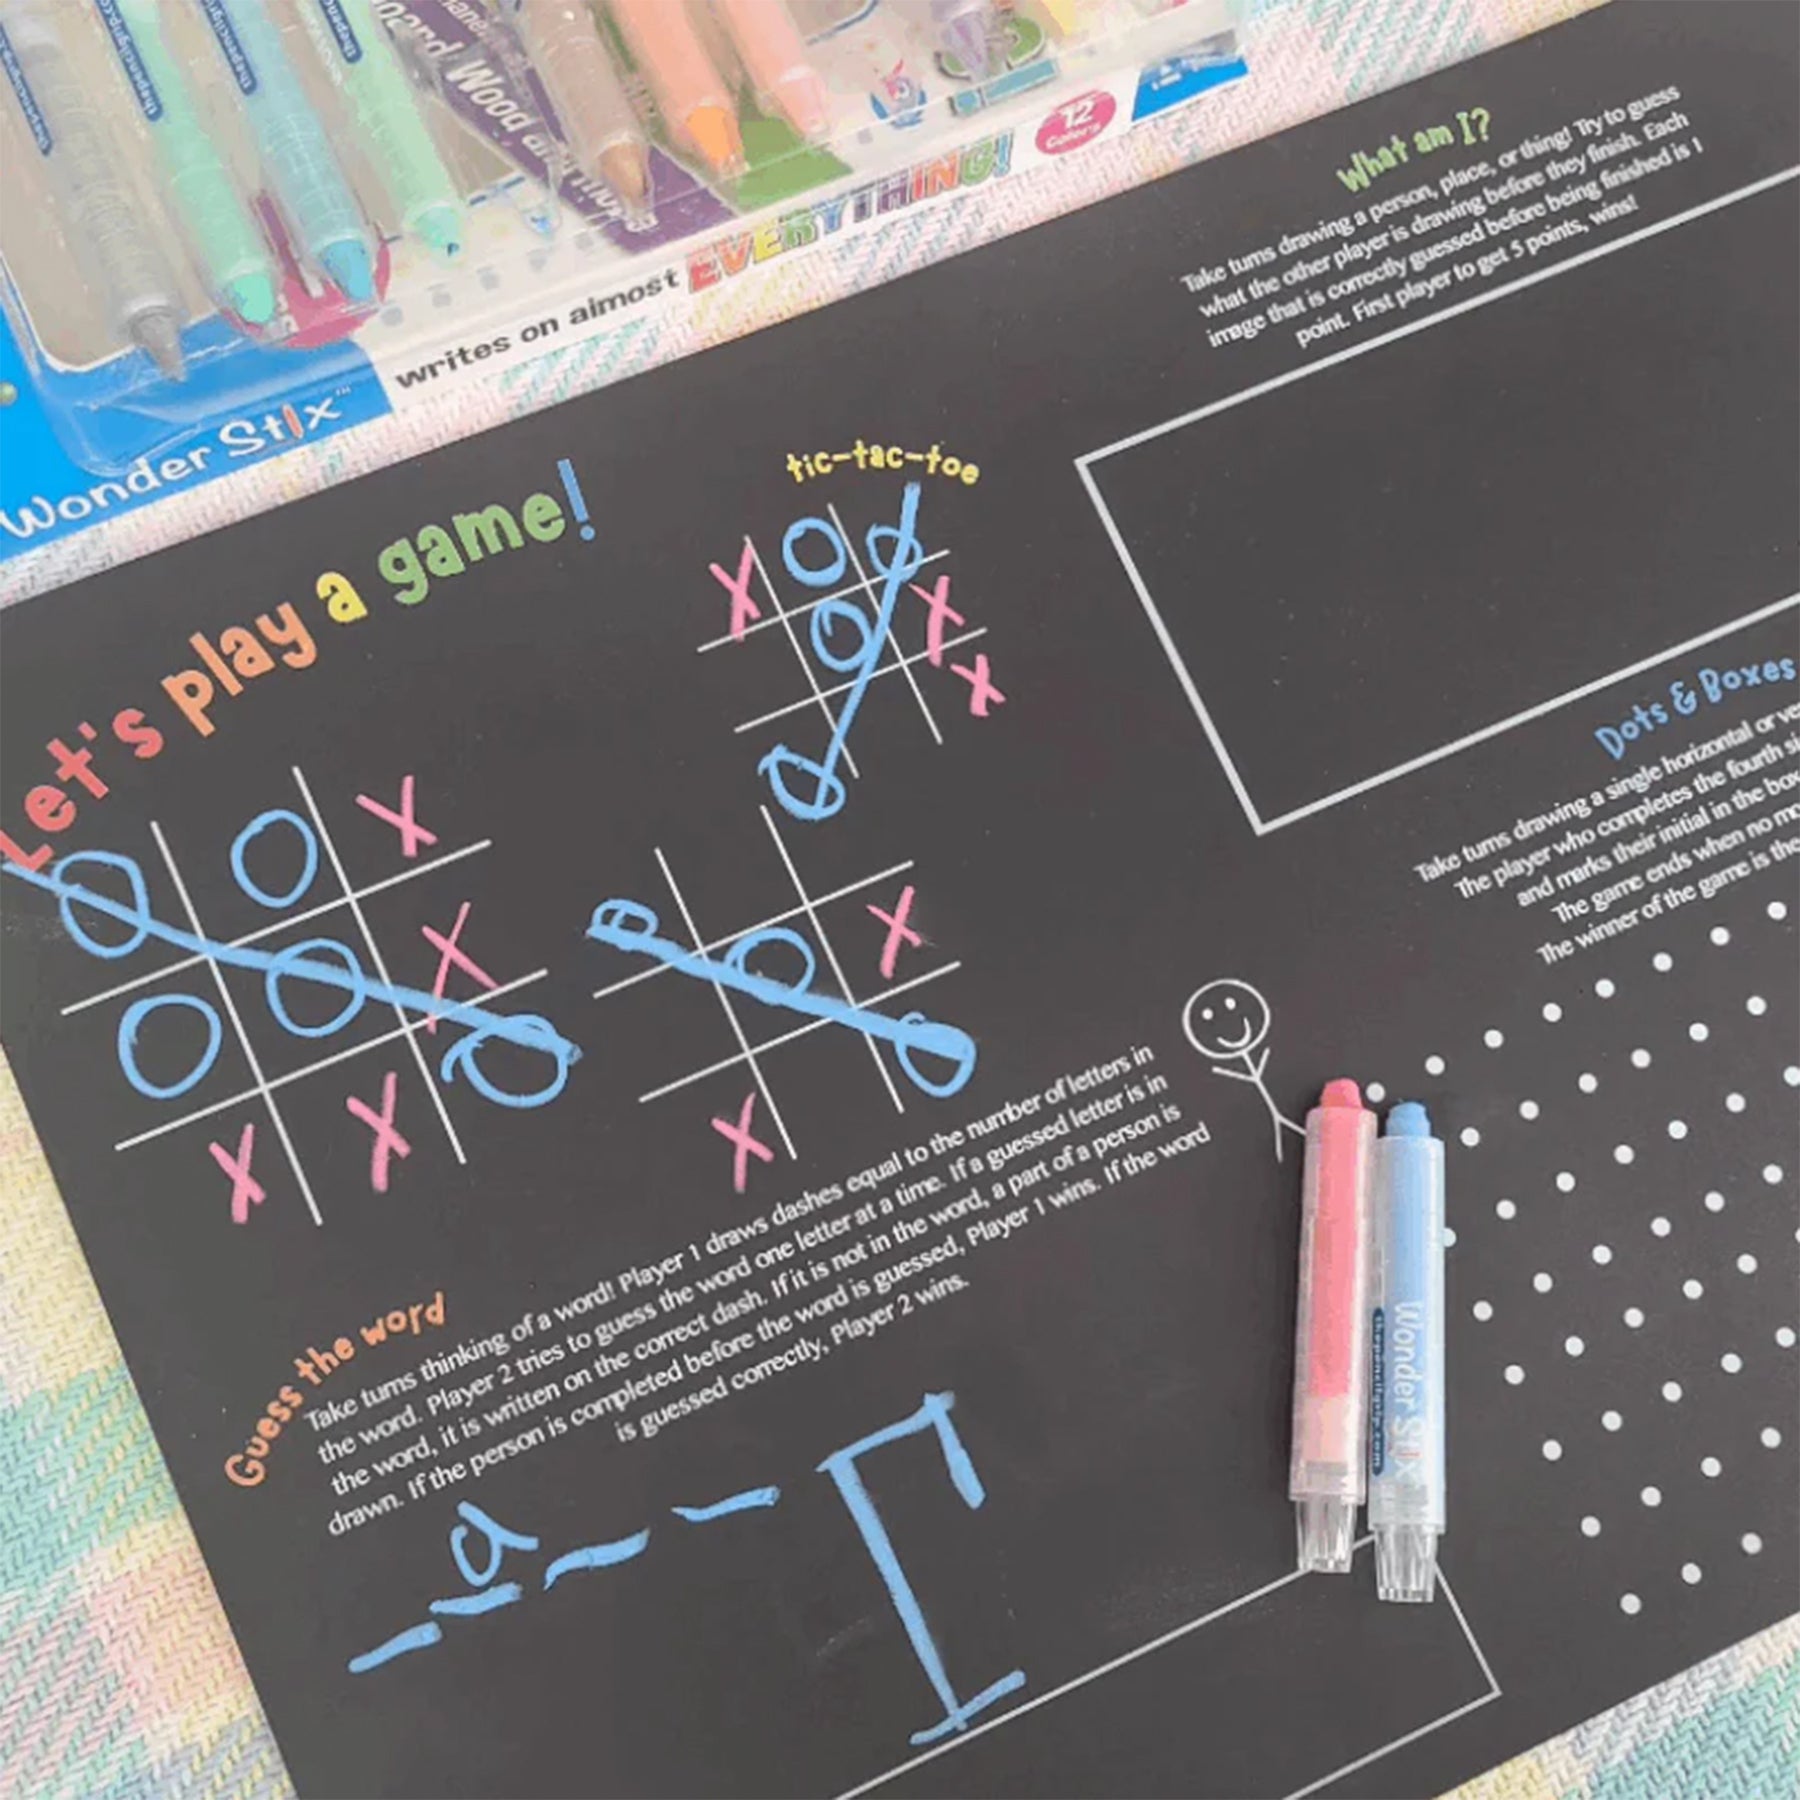 thepencilgrip.com
12
Colors
writes on almost EVERYTHING!
Wonder Stix™
Let's play a game!
tic-tac-toe
O O
X
O X
X
O
O O X
O O X
X X O
O
O X
X O
What am I?
Take turns drawing a person, place, or thing! Try to guess
what the other player is drawing before they finish. Each
image that is correctly guessed before being finished is 1
point. First player to get 5 points, wins!
Dots & Boxes
Take turns drawing a single horizontal or
The player who completes the fourth
and marks their initial in the box
The game ends when no
The winner of the game is the
Guess the word
Take turns thinking of a word! Player 1 draws dashes equal to the number of letters in
the word. Player 2 tries to guess the word one letter at a time. If a guessed letter is in
the word, it is written on the correct dash. If it is not in the word, a part of a person is
drawn. If the person is completed before the word is guessed, Player 1 wins. If the word
is guessed correctly, Player 2 wins.
a
Wonder Stix
thepencilgrip.com